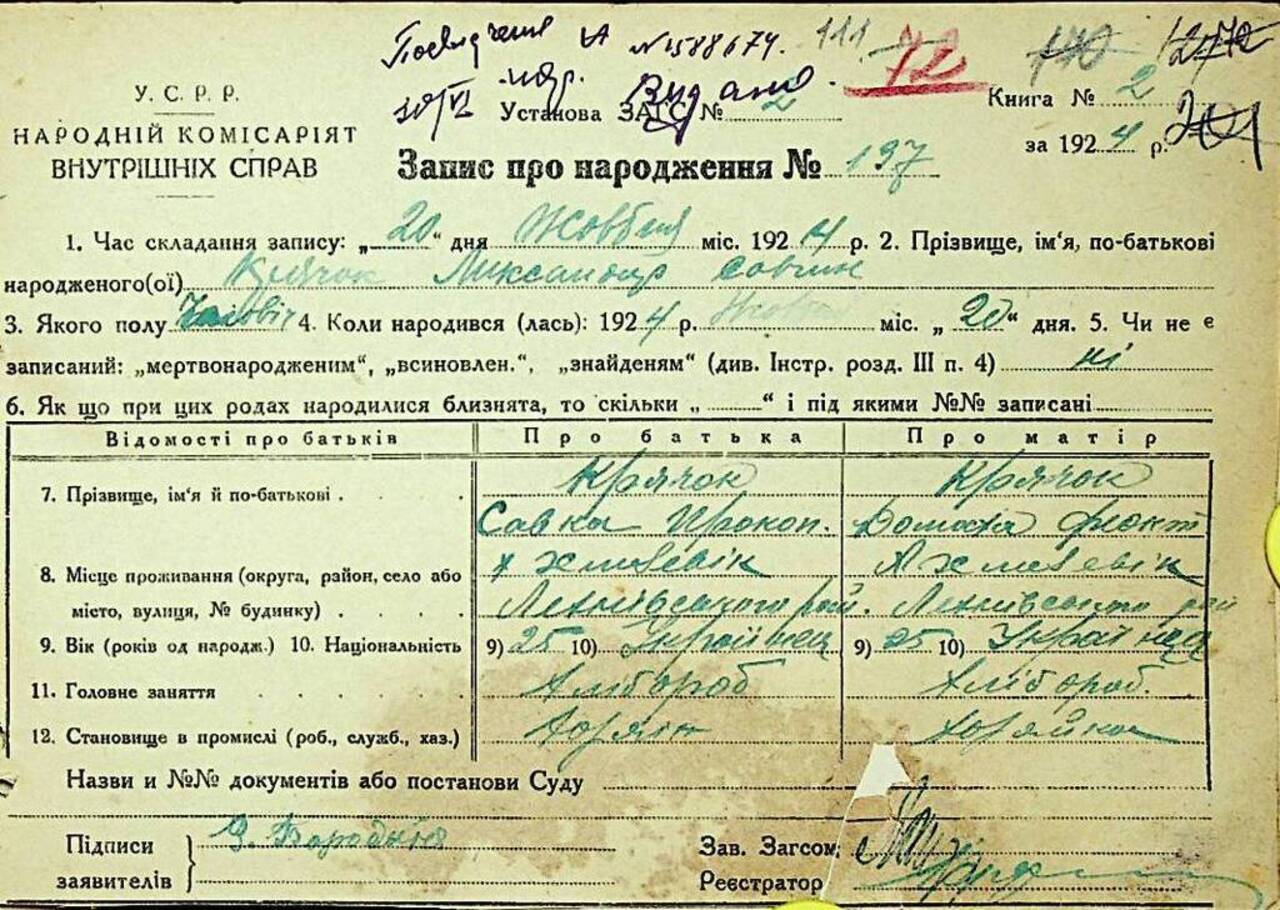 Посвідчення ІА №1588674. 111 72 170 1272
30/VI Видано.
У. С. Р. Р.
НАРОДНІЙ КОМІСАРІЯТ
ВНУТРІШНІХ СПРАВ
Установа ЗАГС № 2
Книга № 2
за 1924 р. 201
Запис про народження № 197
1. Час складання запису: „20“ дня Жовтня міс. 1924 р. 2. Прізвище, ім'я, по-батькові
народженого(ої) Крячок Олександр Савчин
3. Якого полу Чоловіч 4. Коли народився (лась): 1924 р. Жовтня міс. „20“ дня. 5. Чи не є
записаний: „мертвонародженим“, „всиновлен.“, „знайденям“ (див. Інстр. розд. III п. 4) ні
6. Як що при цих родах народилися близнята, то скільки „ “ і під якими №№ записані
Відомості про батьків Про батька Про матір
7. Прізвище, ім'я й по-батькові . . . Крячок Крячок
Савка Прокоп. Домаха
8. Місце проживання (округа, район, село або х Хмелевік Хмелевік
місто, вулиця, № будинку) . . . . рай. рай
9. Вік (років од народж.) 10. Національність 9) 25 10) Українец 9) 25 10) Українец
11. Головне заняття . . . . . Хлібороб Хлібороб.
12. Становище в промислі (роб., служб., хаз.) Хозяїн Хозяйка
Назви и №№ документів або постанови Суду
Підписи
заявителів
Зав. Загсом
Реєстратор